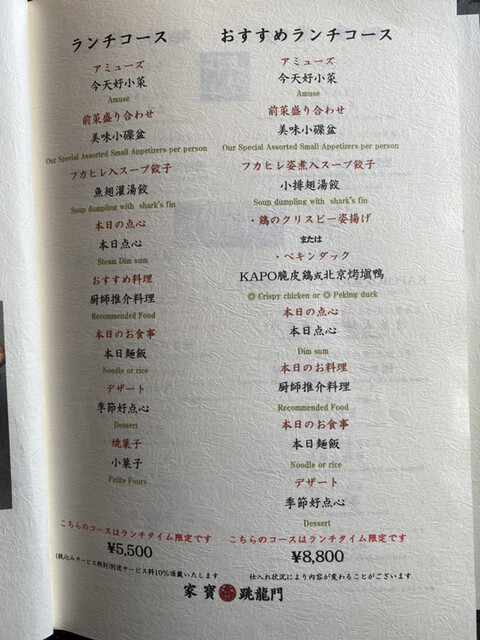 ランチコース
アミューズ
今天好小菜
Amuse
前菜盛り合わせ
美味小碟盆
Our Special Assorted Small Appetizers per person
フカヒレ入スープ餃子
魚翅灌湯餃
Soup dumpling with shark's fin
本日の点心
本日点心
Steam Dim sum
おすすめ料理
厨师推介料理
Recommended Food
本日のお食事
本日麵飯
Noodle or rice
デザート
季節好点心
Dessert
焼菓子
小菓子
Petits Fours
こちらのコースはランチタイム限定です
¥5,500
(税込みサービス料別)別途サービス料10%頂戴いたします
おすすめランチコース
アミューズ
今天好小菜
Amuse
前菜盛り合わせ
美味小碟盆
Our Special Assorted Small Appetizers per person
フカヒレ姿煮入スープ餃子
小排翅湯餃
Soup dumpling with shark's fin
・鶏のクリスピー姿揚げ
または
・ペキンダック
KAPO脆皮鶏或北京烤塡鴨
◎ Crispy chicken or ◎ Peking duck
本日の点心
本日点心
Dim sum
本日のお料理
厨師推介料理
Recommended Food
本日のお食事
本日麵飯
Noodle or rice
デザート
季節好点心
Dessert
こちらのコースはランチタイム限定です
¥8,800
仕入れ状況により内容が変わることがございます
家寶 跳龍門